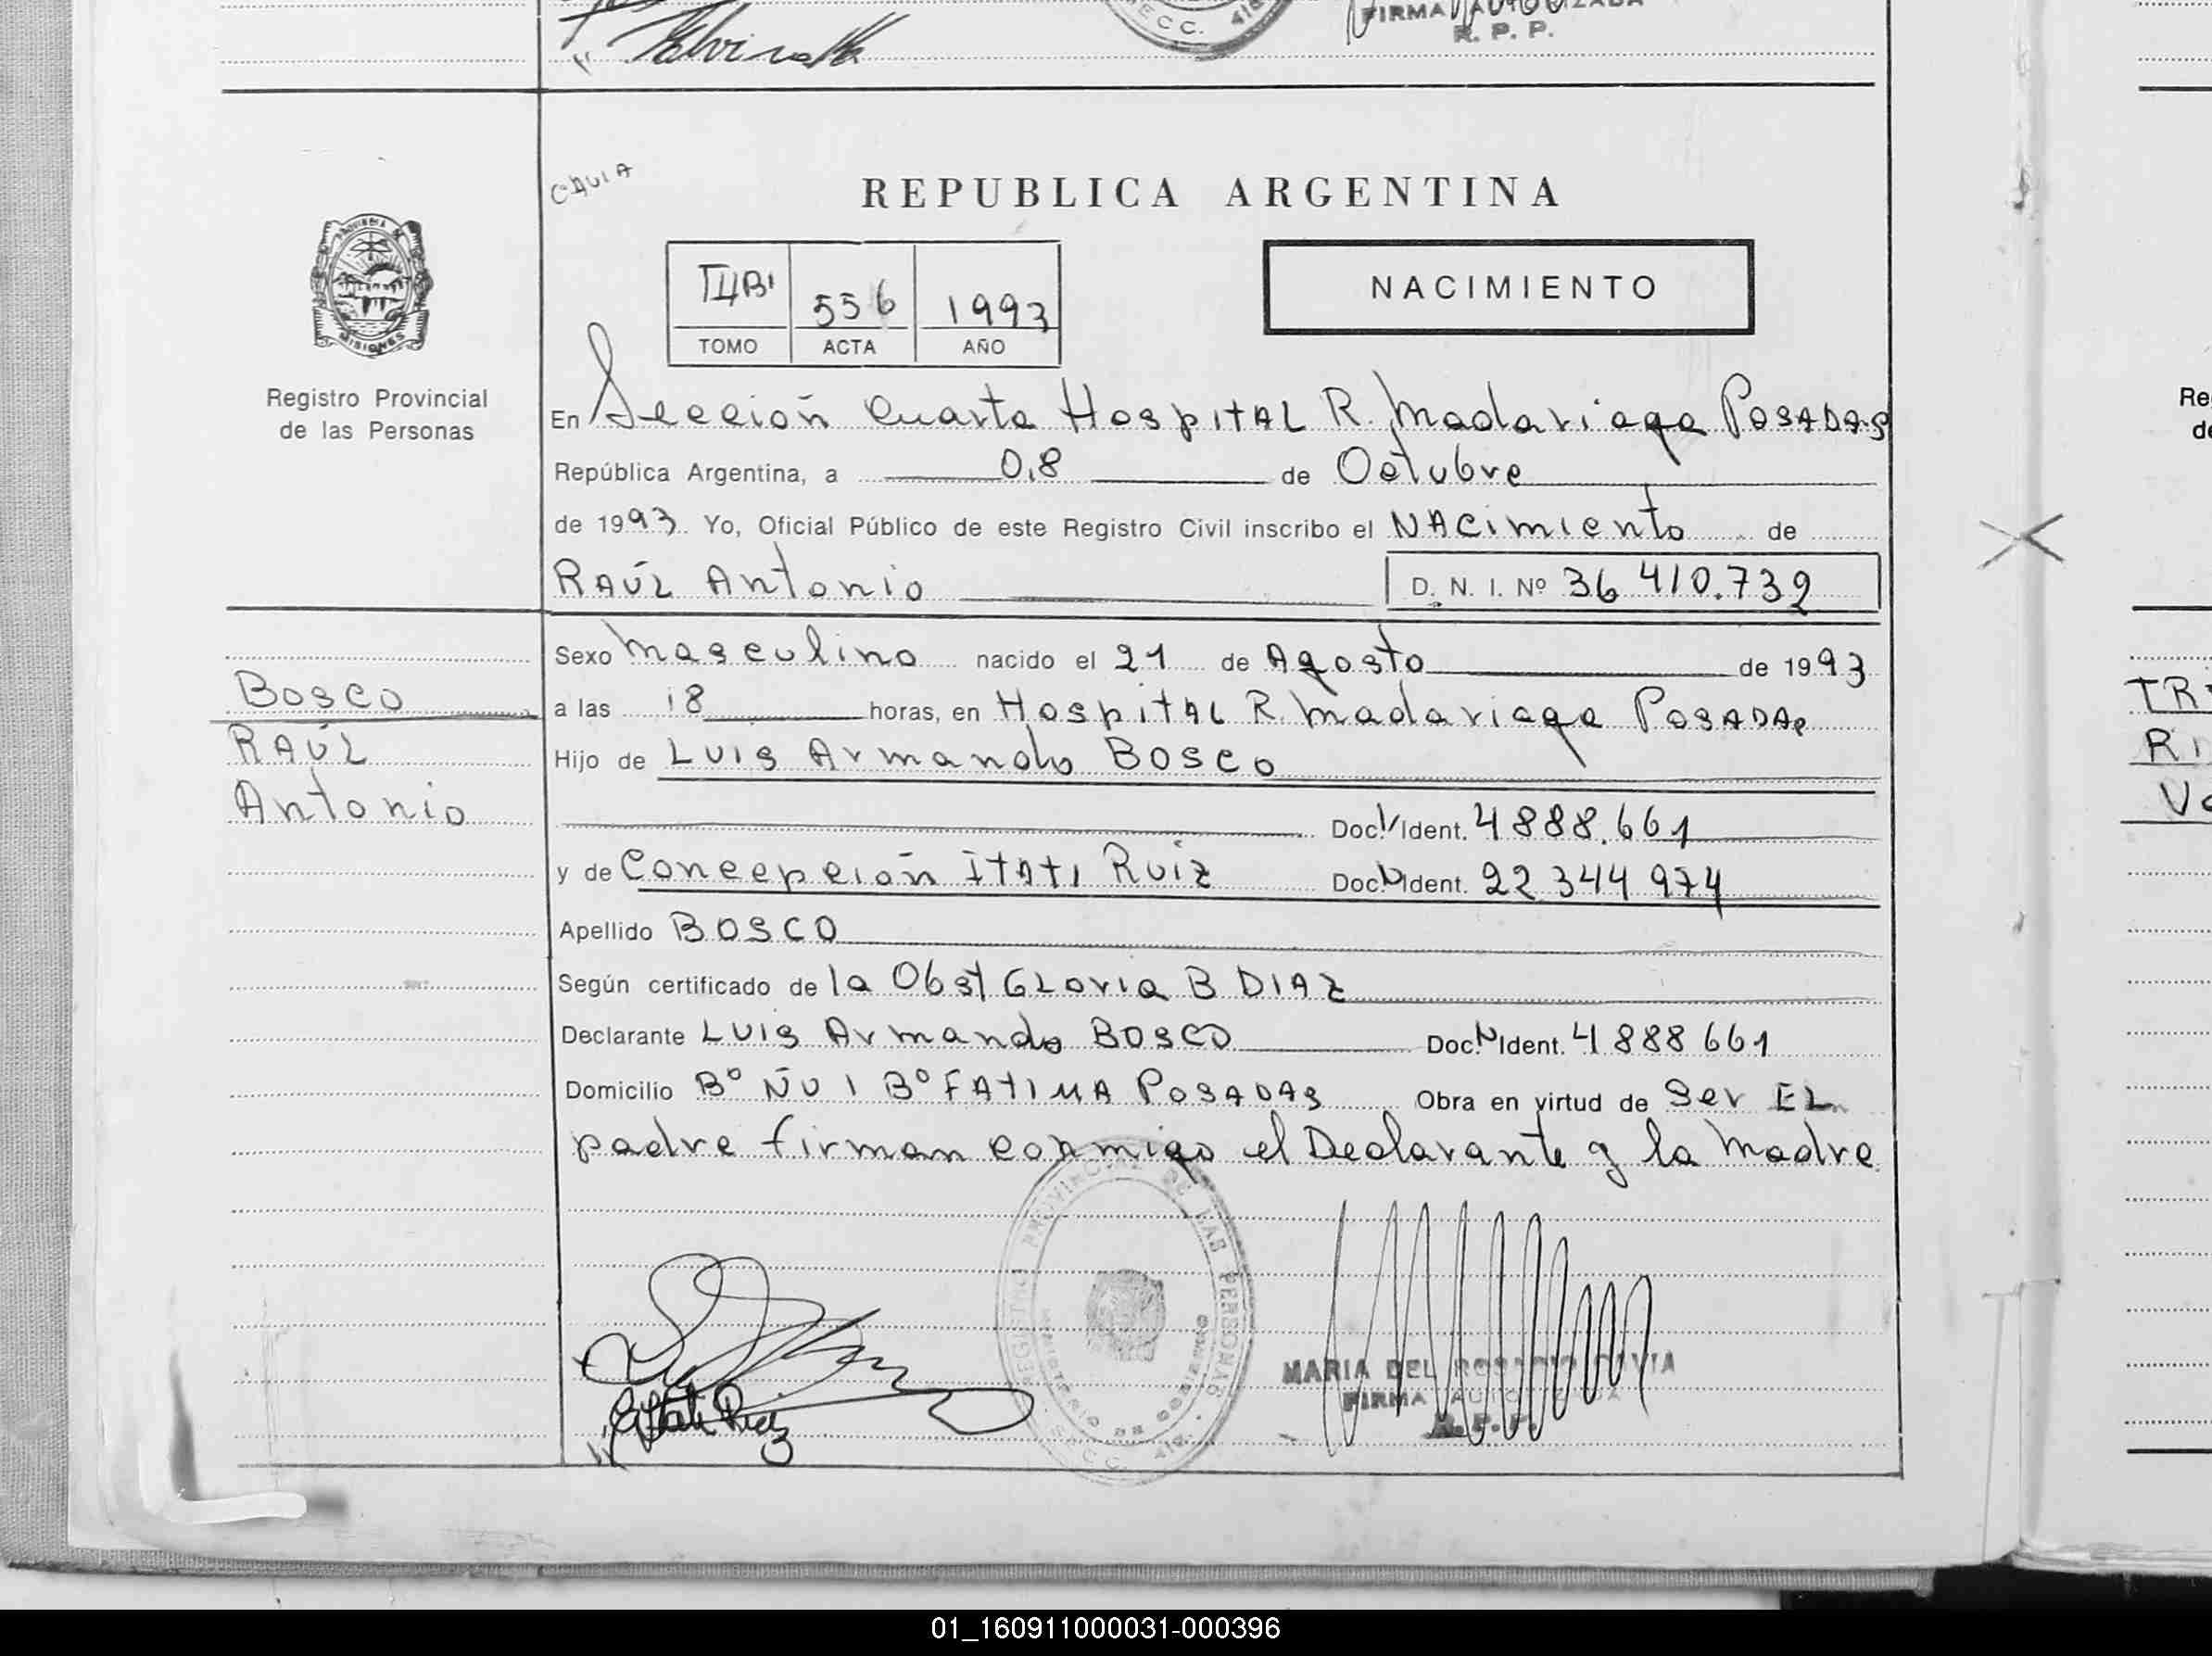 FIRMA AUTORIZADA
R. P. P.
REPUBLICA ARGENTINA
NACIMIENTO
556 1993
TOMO ACTA AÑO
MISIONES
Registro Provincial
de las Personas
En Sección Cuarta Hospital R. Madariaga POSADAS
República Argentina, a 08 de Octubre
de 1993 Yo, Oficial Público de este Registro Civil inscribo el NACimiento de
RAÚL Antonio D. N. I. Nº 36 410.732
Sexo masculino nacido el 21 de Agosto de 1993
Bosco
a las 18 horas, en Hospital R. Madariaga POSADAS
RAÚL
Hijo de Luis Armando Bosco
Antonio
Doc. Ident. 4888.661
y de Concepción ITATI Ruiz Doc. N Ident. 22 344 974
Apellido BOSCO
Según certificado de la Obst GLoria B DIAZ
Declarante Luis Armando BOSCO Doc. N Ident. 4 888 661
Domicilio Bº ÑU 1 Bº FATIMA POSADAS Obra en virtud de Ser EL
padre firman conmigo el Declarante y la madre
REGISTRO PROVINCIAL DE LAS PERSONAS
MINISTERIO DE GOBIERNO
MARIA DEL ROSARIO CAVIA
FIRMA AUTORIZADA
R. P. P.
Itati Ruiz
01_160911000031-000396